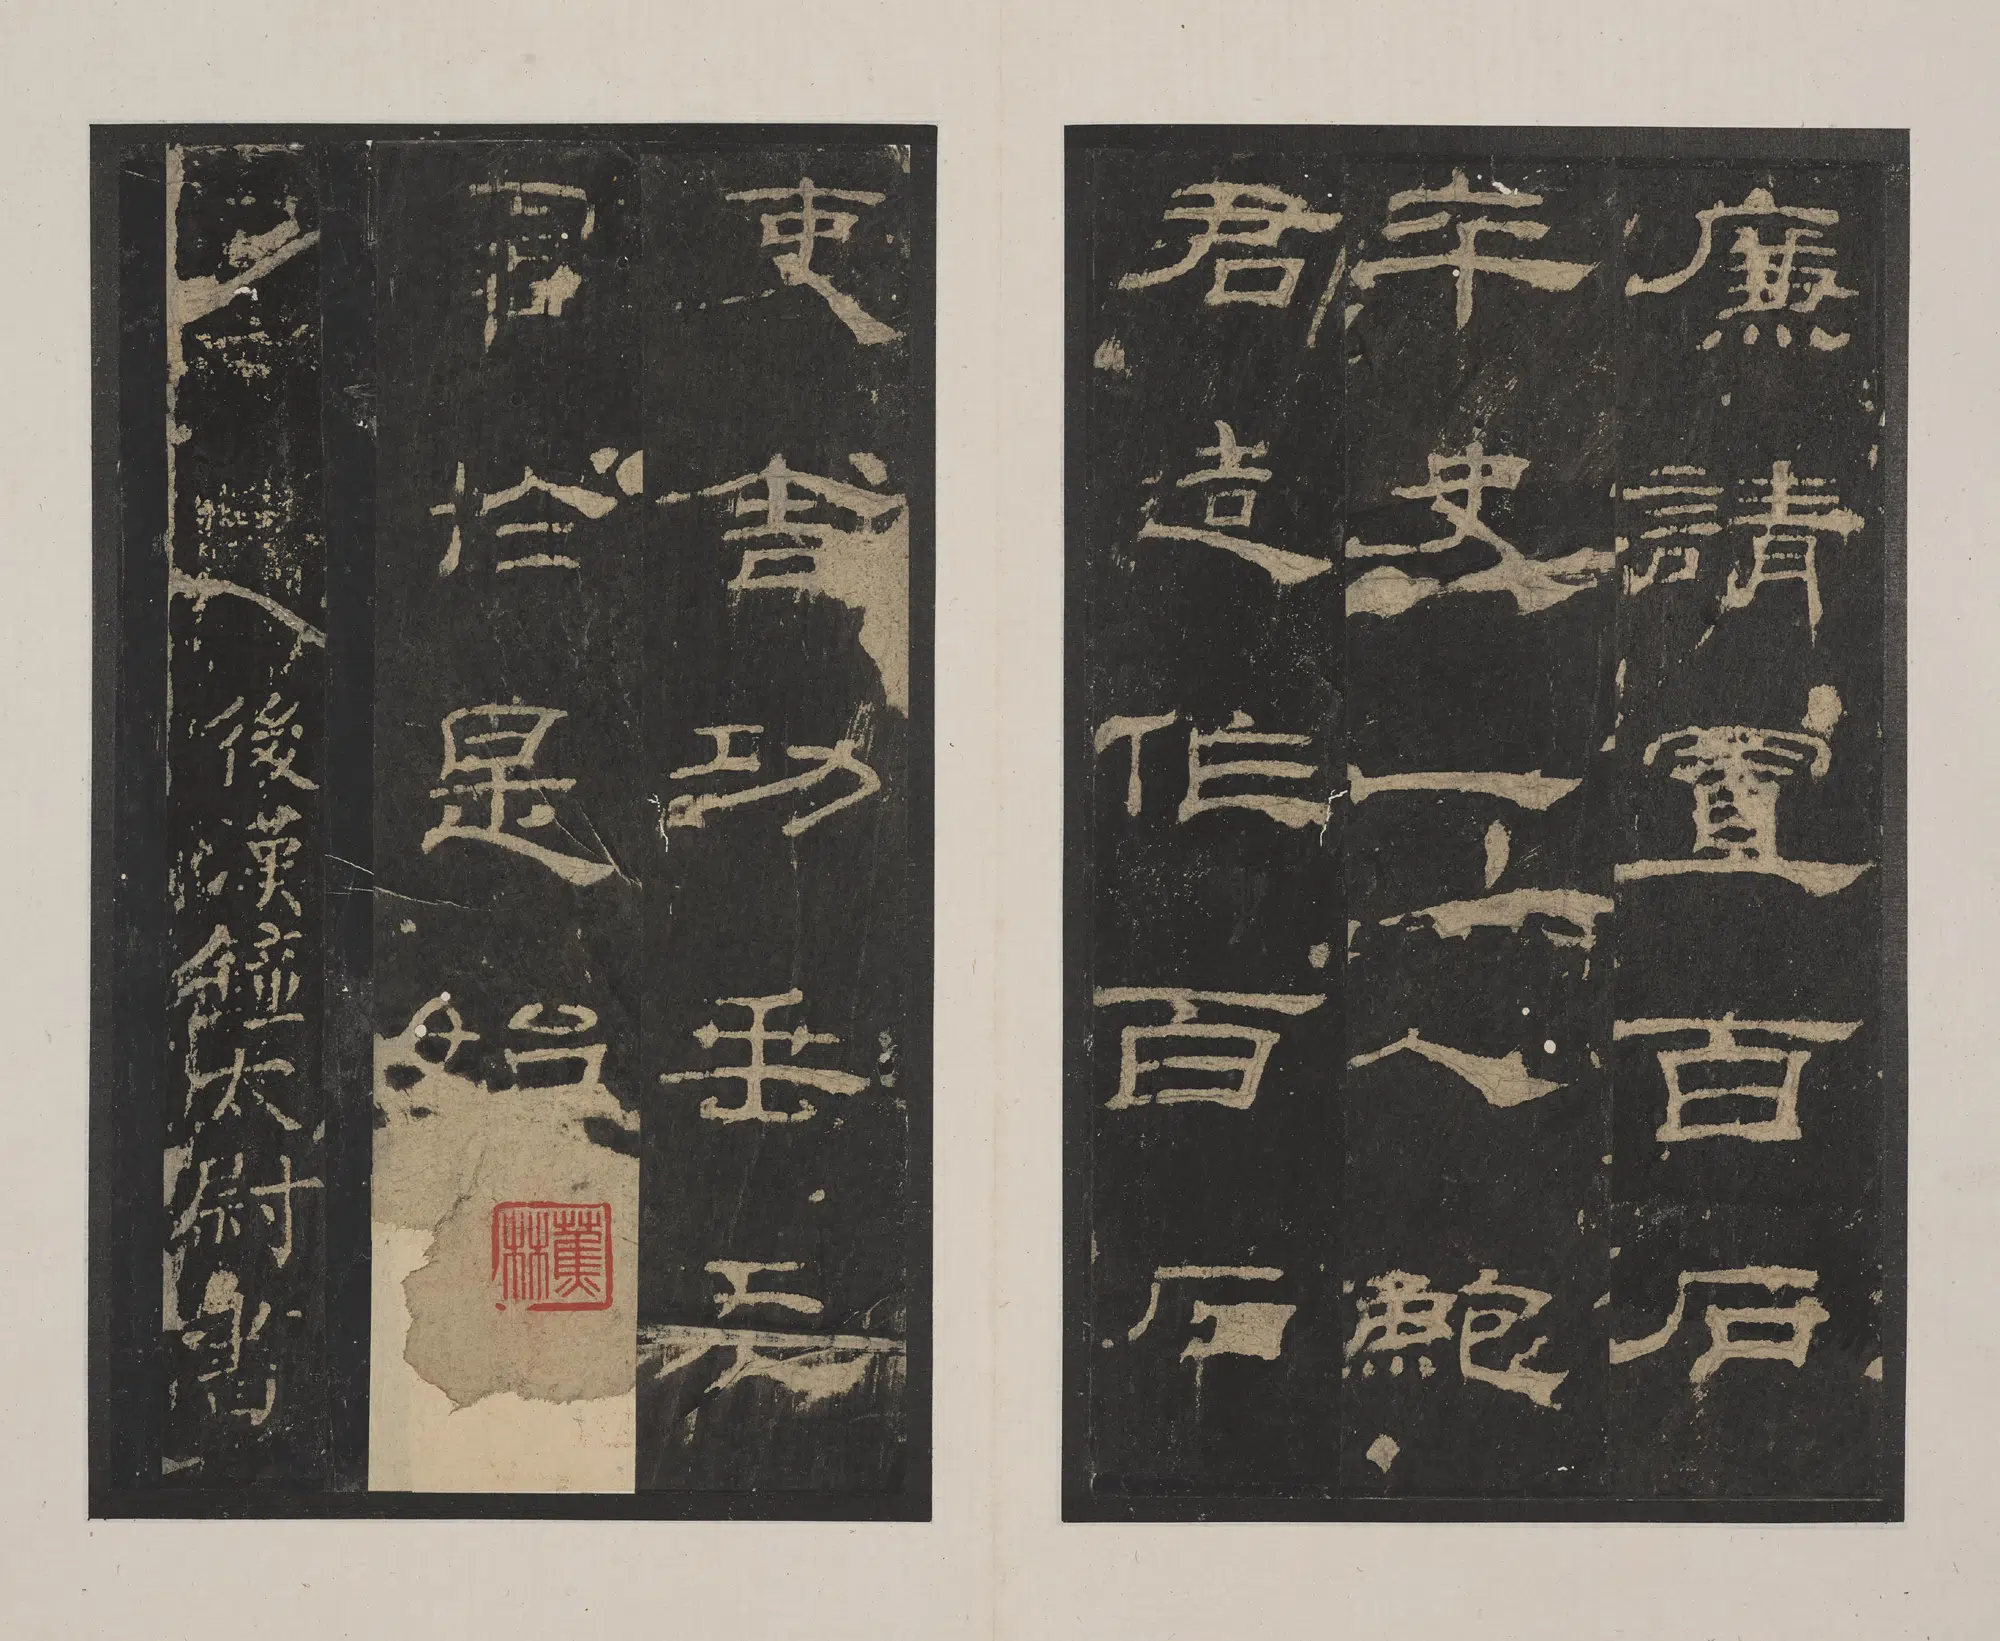 廉請置百石
卒史一人鮑
君造作百石
吏舍功垂无
於是始
蕉林
後漢鍾太尉書